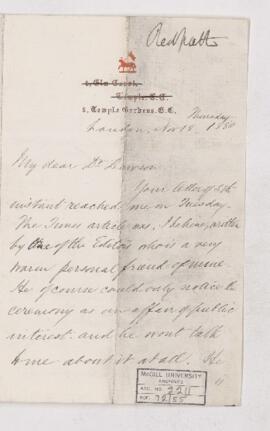 Redpath
1, Elm Court,
Temple. E.C.
2, Temple Gardens. E.C.
Thursday
London, Nov 18. 1880
My dear Dr Dawson
Your letter of
instant reached me on Tuesday.
The Times article was, I believe, written
by one of the Editors who is a very
warm personal friend of mine.
He of course could only notice the
ceremony as an affair of public
interest. and he wont talk
to me about it at all. He
McGILL UNIVERSITY
ARCHIVES
ACC. NO. 2211
REF. 72/55